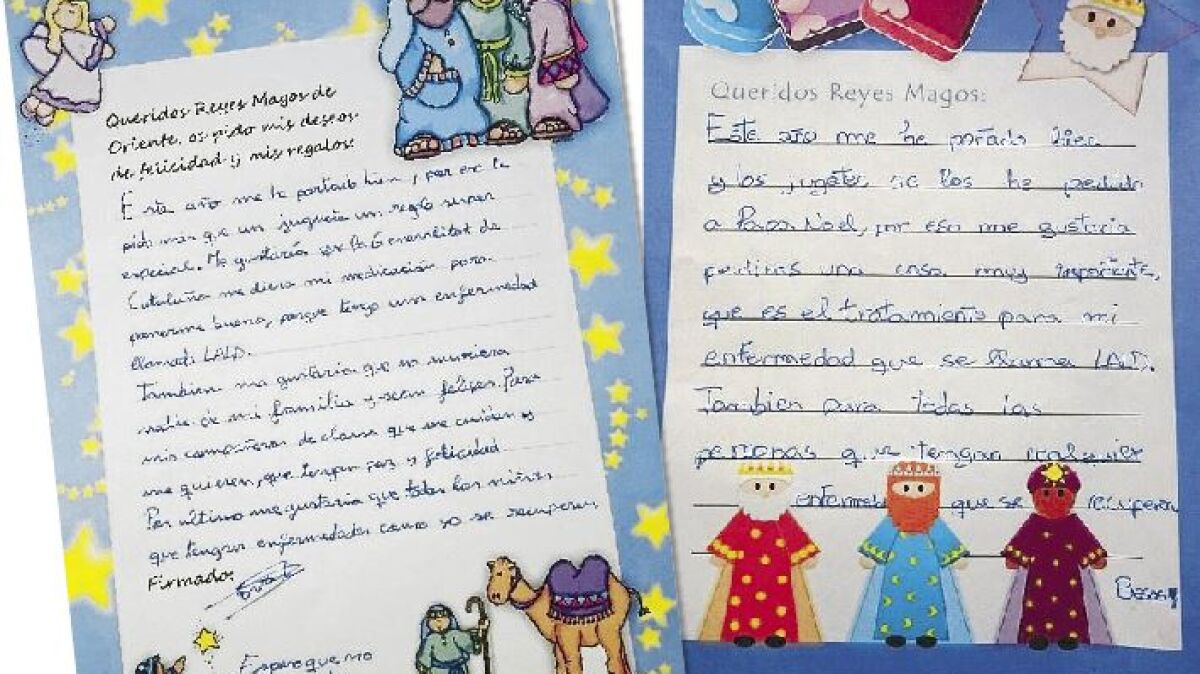 Queridos Reyes Magos de
Oriente, os pido mis deseos
de felicidad y mis regalos:
Este año me he portado bien, por eso le
pido más que un juguete un regalo super
especial. Me gustaría que la Generalitat de
Cataluña me diera mi medicación para
ponerme buena, porque tengo una enfermedad
llamada LALD.
Tambien me gustaria que no muriera
nadie de mi familia y sean felices. Para
mis compañeros de clase que me cuidan y
me quieren, que tengan paz y felicidad
Por ultimo me gustaria que todos los niños
que tengan enfermedades como yo se recuperen
Firmado:
Espero que no
Queridos Reyes Magos:
Este año me he portado bien
y los juguetes se los he pedido
a Papa Noel, por eso me gustaria
pediros una cosa muy importante,
que es el tratamiento para mi
enfermedad que se llama LALD.
Tambien para todas las
personas que tengan cualquier
enfermedad que se recuperen
Besos